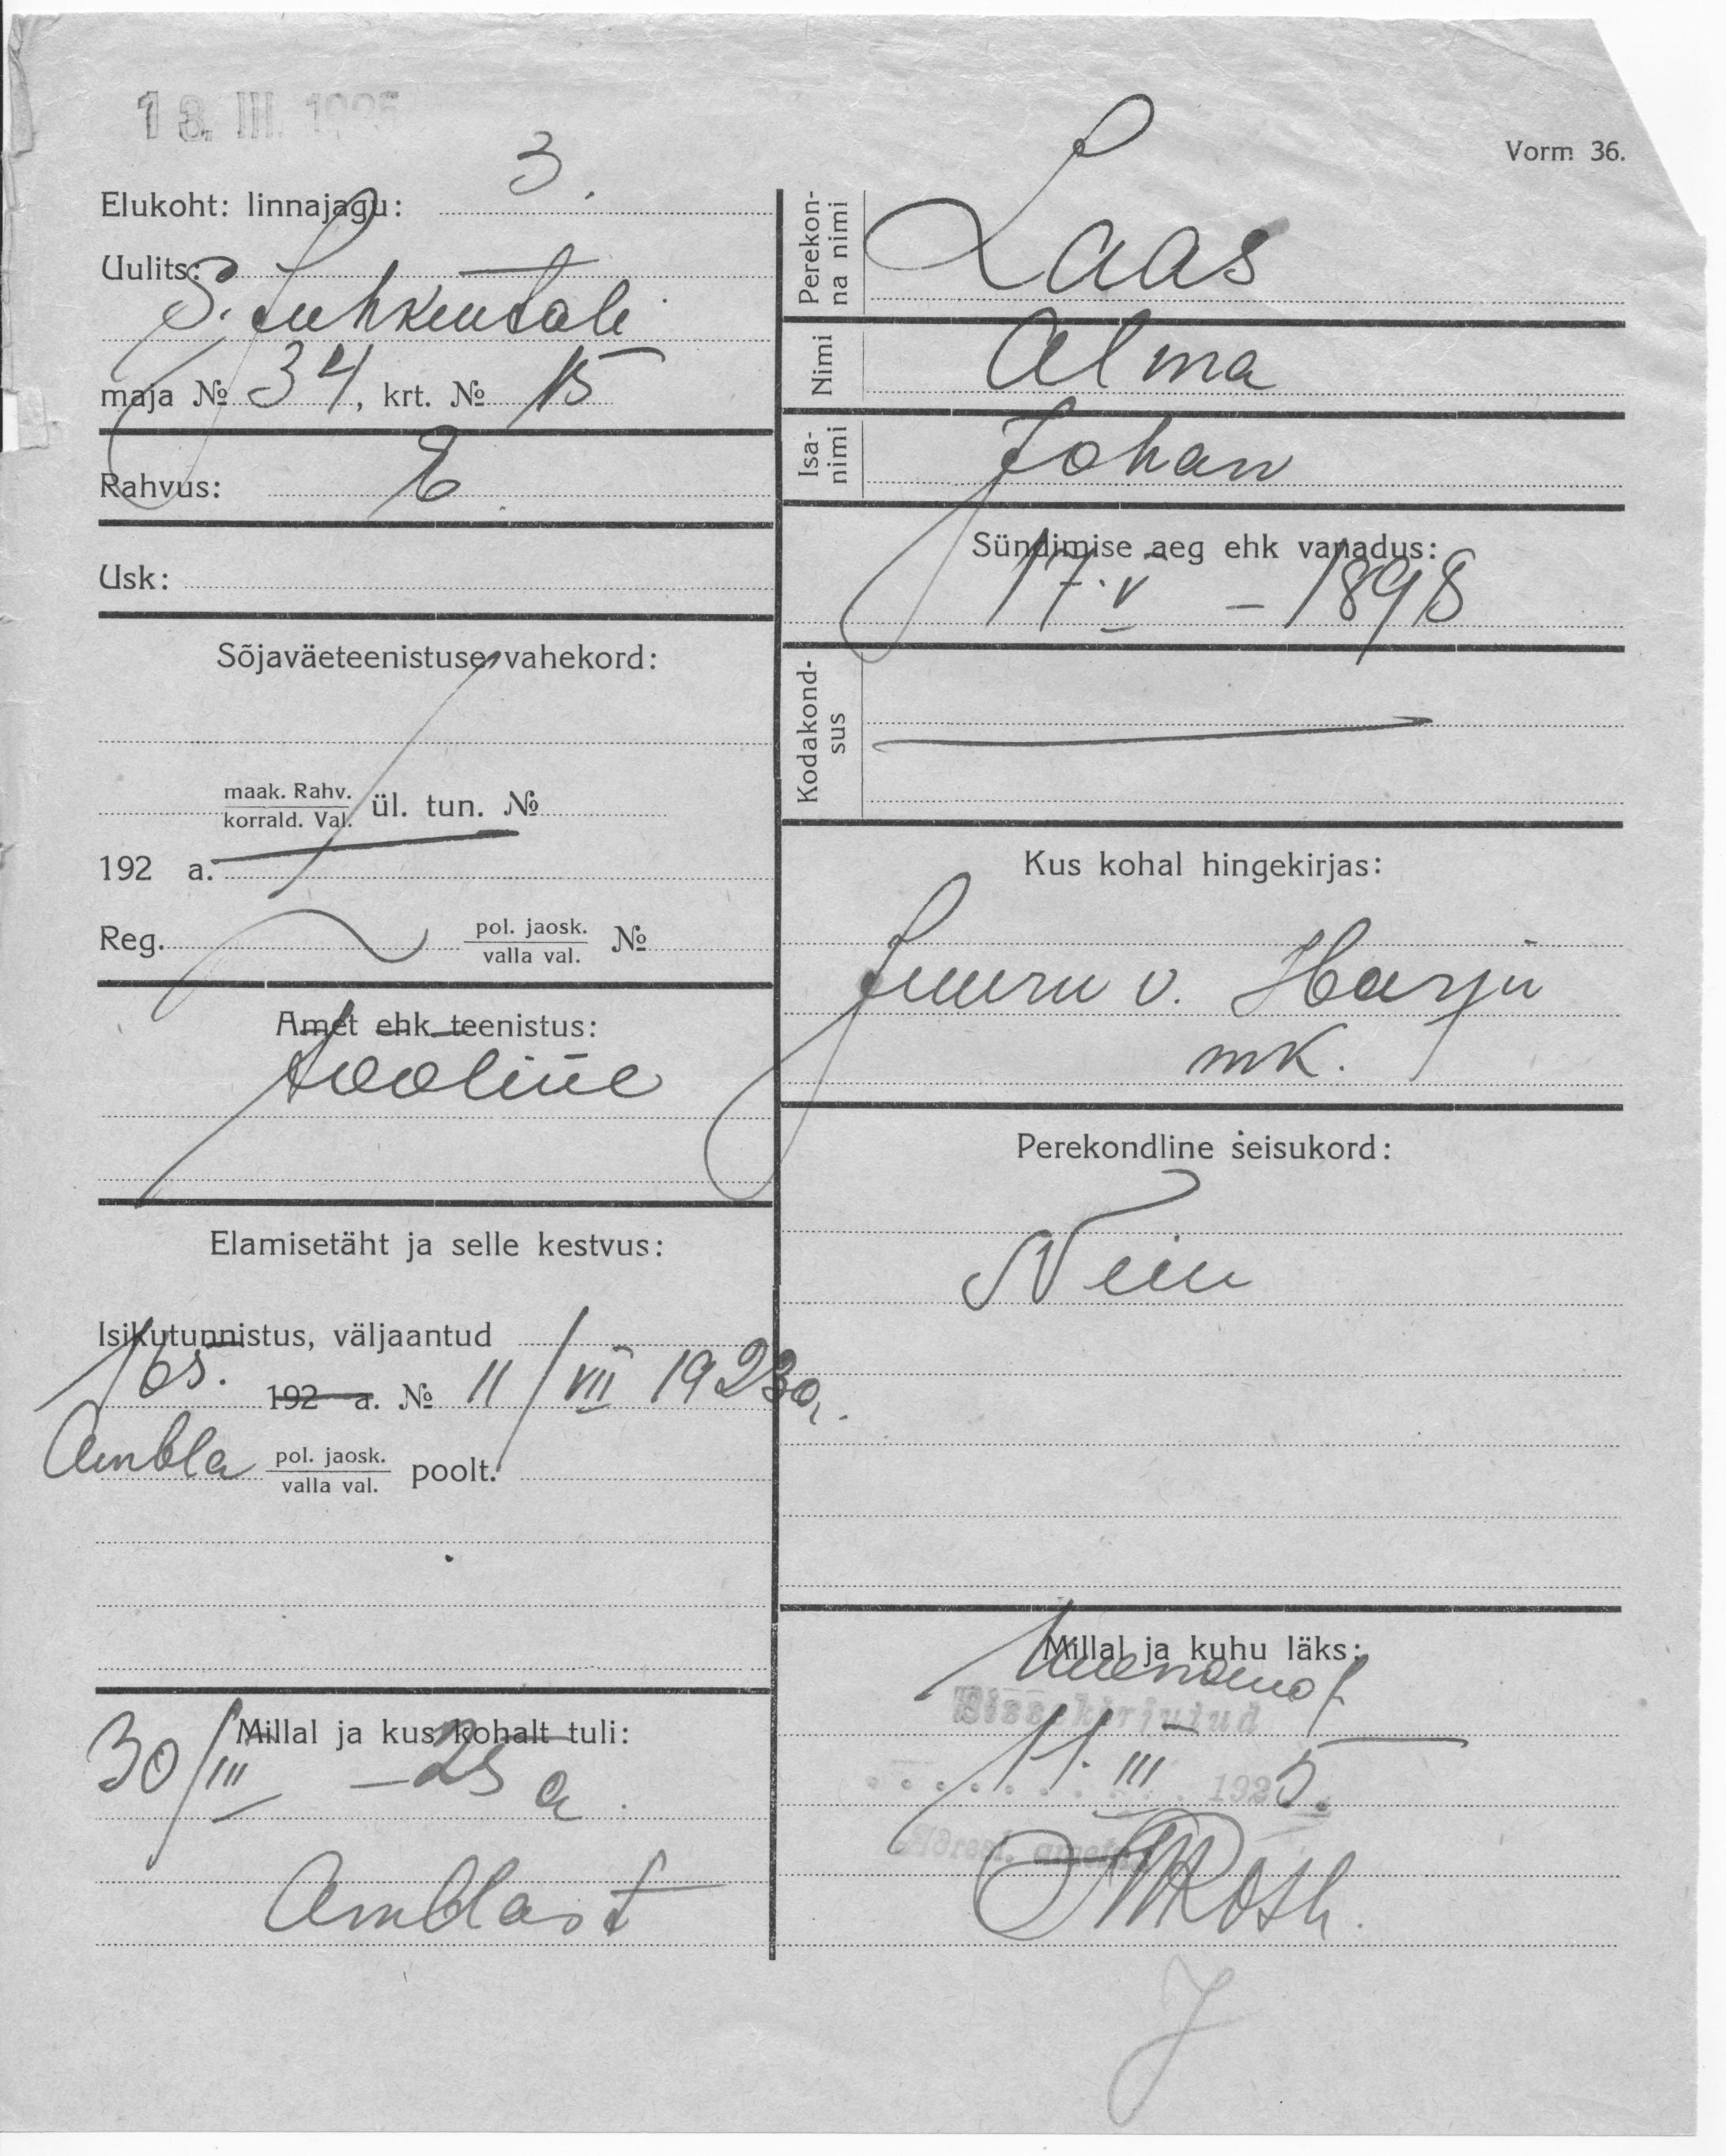 13. III. 1925
Vorm 36.
Elukoht: linnajagu: 3.
Uulits: S.
Juhkentali
maja № 34, krt. № 15
Rahvus: E
Usk:
Sõjaväeteenistuse vahekord:
maak. Rahv.
korrald. Val. ül. tun. №
192 a.
Reg. pol. jaosk.
valla val. №
Amet ehk teenistus:
tööline
Elamisetäht ja selle kestvus:
Isikutunnistus, väljaantud
165. 192 a. № 11/VII 1923 a.
Ambla pol. jaosk.
valla val. poolt.
Millal ja kus kohalt tuli:
30/III - 25 a.
Amblast
Perekon-
na nimi Laas
Nimi Alma
Isa-
nimi Johan
Sündimise aeg ehk vanadus:
17. V - 1898
Kodakond-
sus
Kus kohal hingekirjas:
Juuru v. Harju
mk.
Perekondline seisukord:
Neiu
Millal ja kuhu läks:
Sissekirjutud
11. III 1925.
Adressl. ametn.
J